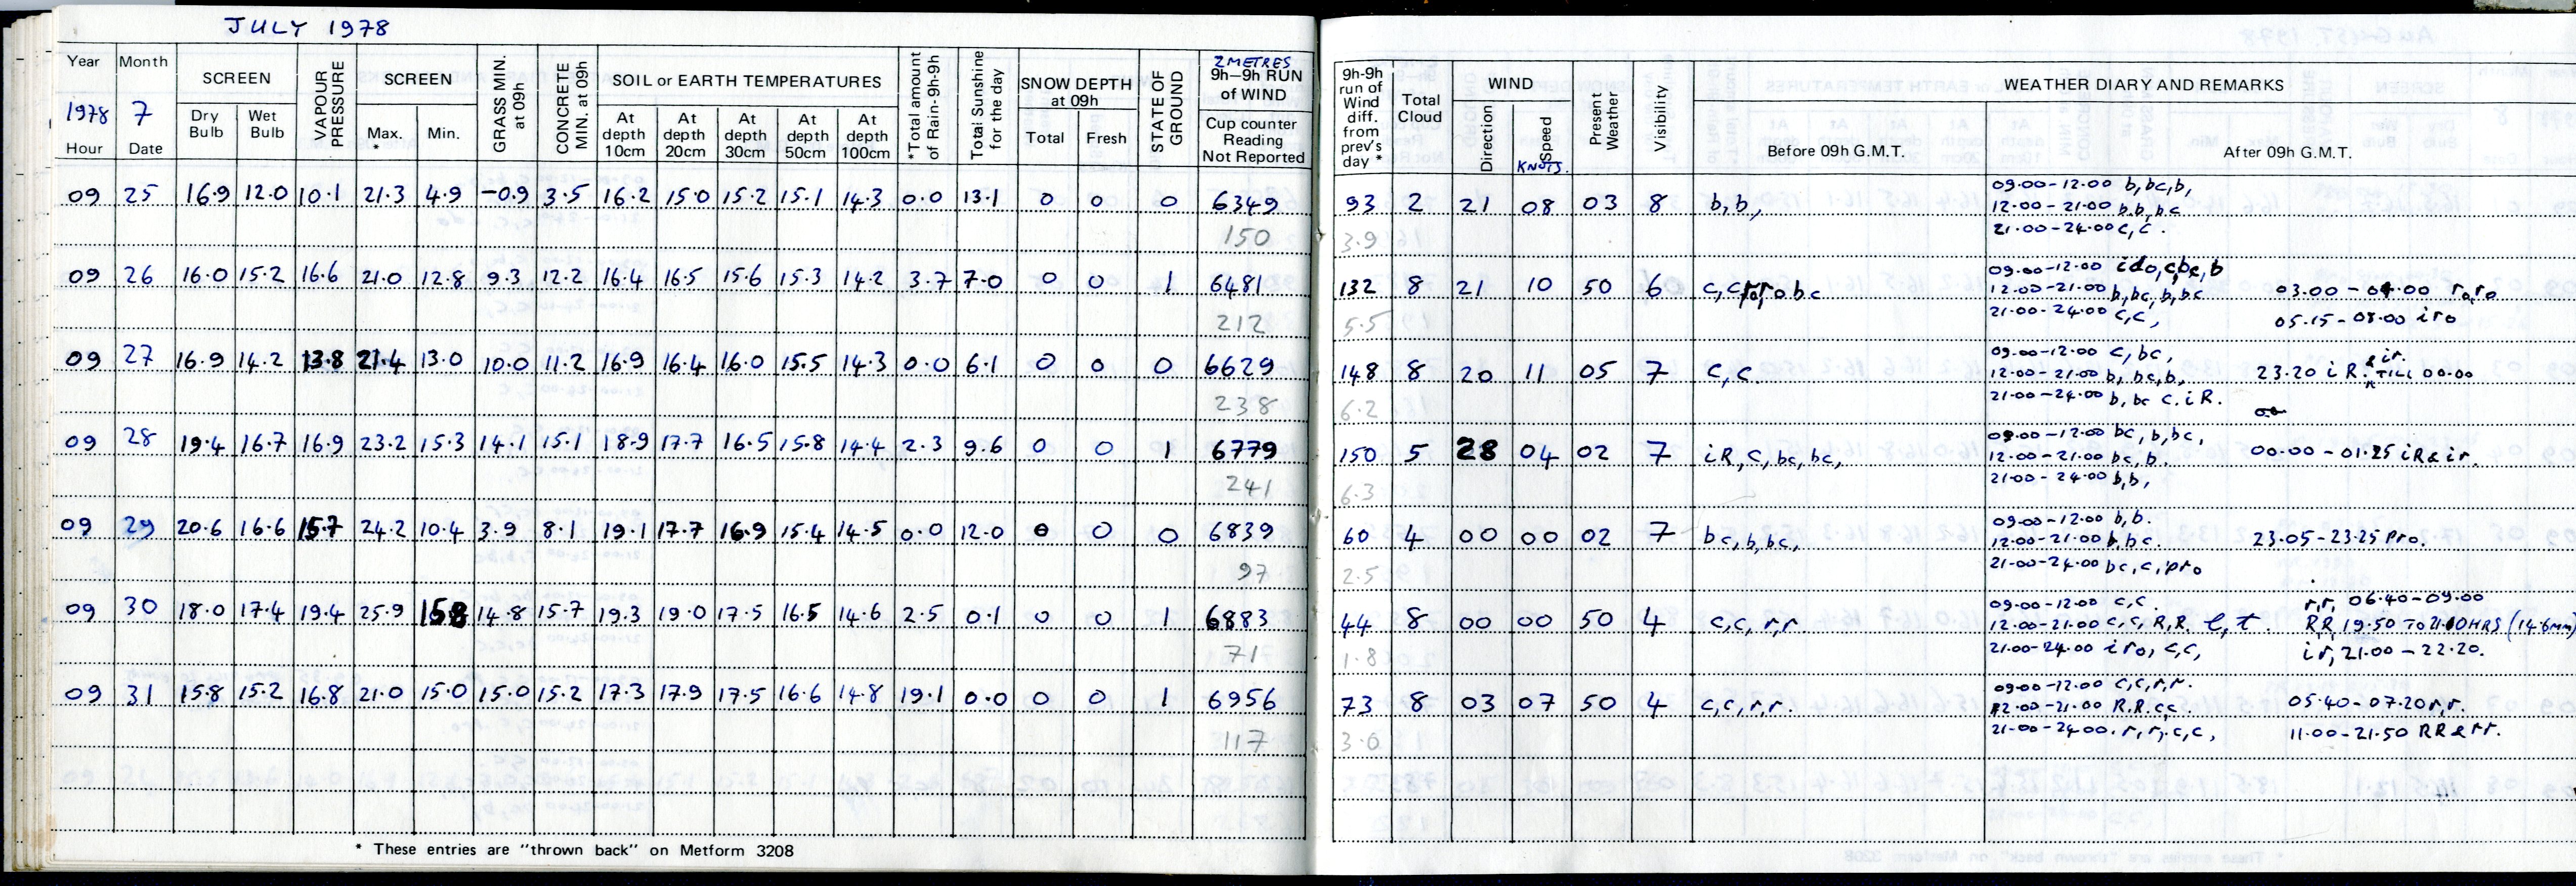 JULY 1978
Year Month SCREEN VAPOUR PRESSURE SCREEN GRASS MIN. at 09h CONCRETE MIN. at 09h SOIL or EARTH TEMPERATURES *Total amount of Rain-9h-9h Total Sunshine for the day SNOW DEPTH at 09h STATE OF GROUND 2 METRES 9h–9h RUN of WIND
1978 7 Dry Bulb Wet Bulb Max. * Min. At depth 10cm At depth 20cm At depth 30cm At depth 50cm At depth 100cm Total Fresh Cup counter Reading Not Reported
Hour Date
09 25 16.9 12.0 10.1 21.3 4.9 -0.9 3.5 16.2 15.0 15.2 15.1 14.3 0.0 13.1 0 0 0 6349
150
09 26 16.0 15.2 16.6 21.0 12.8 9.3 12.2 16.4 16.5 15.6 15.3 14.2 3.7 7.0 0 0 1 6481
212
09 27 16.9 14.2 13.8 21.4 13.0 10.0 11.2 16.9 16.4 16.0 15.5 14.3 0.0 6.1 0 0 0 6629
238
09 28 19.4 16.7 16.9 23.2 15.3 14.1 15.1 18.9 17.7 16.5 15.8 14.4 2.3 9.6 0 0 1 6779
241
09 29 20.6 16.6 15.7 24.2 10.4 3.9 8.1 19.1 17.7 16.9 15.4 14.5 0.0 12.0 0 0 0 6839
97
09 30 18.0 17.4 19.4 25.9 15.8 14.8 15.7 19.3 19.0 17.5 16.5 14.6 2.5 0.1 0 0 1 6883
71
09 31 15.8 15.2 16.8 21.0 15.0 15.0 15.2 17.3 17.9 17.5 16.6 14.8 19.1 0.0 0 0 1 6956
117
* These entries are "thrown back" on Metform 3208
9h-9h run of Wind diff. from prev's day * Total Cloud WIND Present Weather Visibility WEATHER DIARY AND REMARKS
Direction Speed KNOTS. Before 09h G.M.T. After 09h G.M.T.
09.00-12.00 b, bc, b,
93 2 21 08 03 8 b, b, 12.00-21.00 b, b, bc
3.9 21.00-24.00 c, c.
09.00-12.00 ido, cbc, b
132 8 21 10 50 6 c, bc 12.00-21.00 b, bc, b, bc 03.00-04.00 ro, ro
5.5 21.00-24.00 c, c, 05.15-08.00 iro
09.00-12.00 c, bc, & ir.
148 8 20 11 05 7 c, c. 12.00-21.00 b, bc, b, 23.20 iR. TILL 00.00
6.2 21.00-24.00 b, bc c. iR.
09.00-12.00 bc, b, bc,
150 5 28 04 02 7 iR, c, bc, bc, 12.00-21.00 bc, b. 00.00-01.25 iR & ir.
6.3 21.00-24.00 b, b,
09.00-12.00 b, b.
60 4 00 00 02 7 bc, b, bc, 12.00-21.00 b, bc. 23.05-23.25 pro.
2.5 21.00-24.00 bc, c, pro
09.00-12.00 c, c. r, r, 06.40-09.00
44 8 00 00 50 4 c, c, r, r. 12.00-21.00 c, c, R, R. l, t. R, R, 19.50 TO HRS (14.6mm)
1.8 21.00-24.00 iro, c, c, ir, 21.00-22.20.
09.00-12.00 c, c, r, r.
73 8 03 07 50 4 c, c, r, r. 12.00-21.00 R. R. c, c 05.40-07.20 r, r.
3.0 21.00-24.00. r, r, c, c, 11.00-21.50 RR & rr.